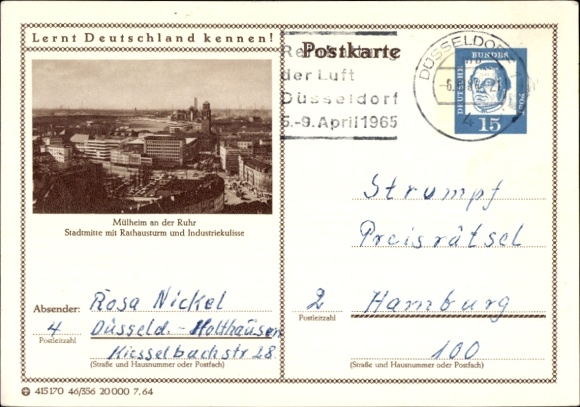 Lernt Deutschland kennen!
Postkarte
der Luft
Düsseldorf
5.-9. April 1965
DÜSSELDORF
4
DEUTSCHE BUNDESPOST
15
Mülheim an der Ruhr
Stadtmitte mit Rathausturm und Industriekulisse
Absender: Rosa Nickel
4 Düsseld.-Holthausen
Postleitzahl
Kiesselbachstr 28
(Straße und Hausnummer oder Postfach)
Strumpf
Preisrätsel
2 Hamburg
Postleitzahl
100
(Straße und Hausnummer oder Postfach)
415170 46/356 20 000 7. 64